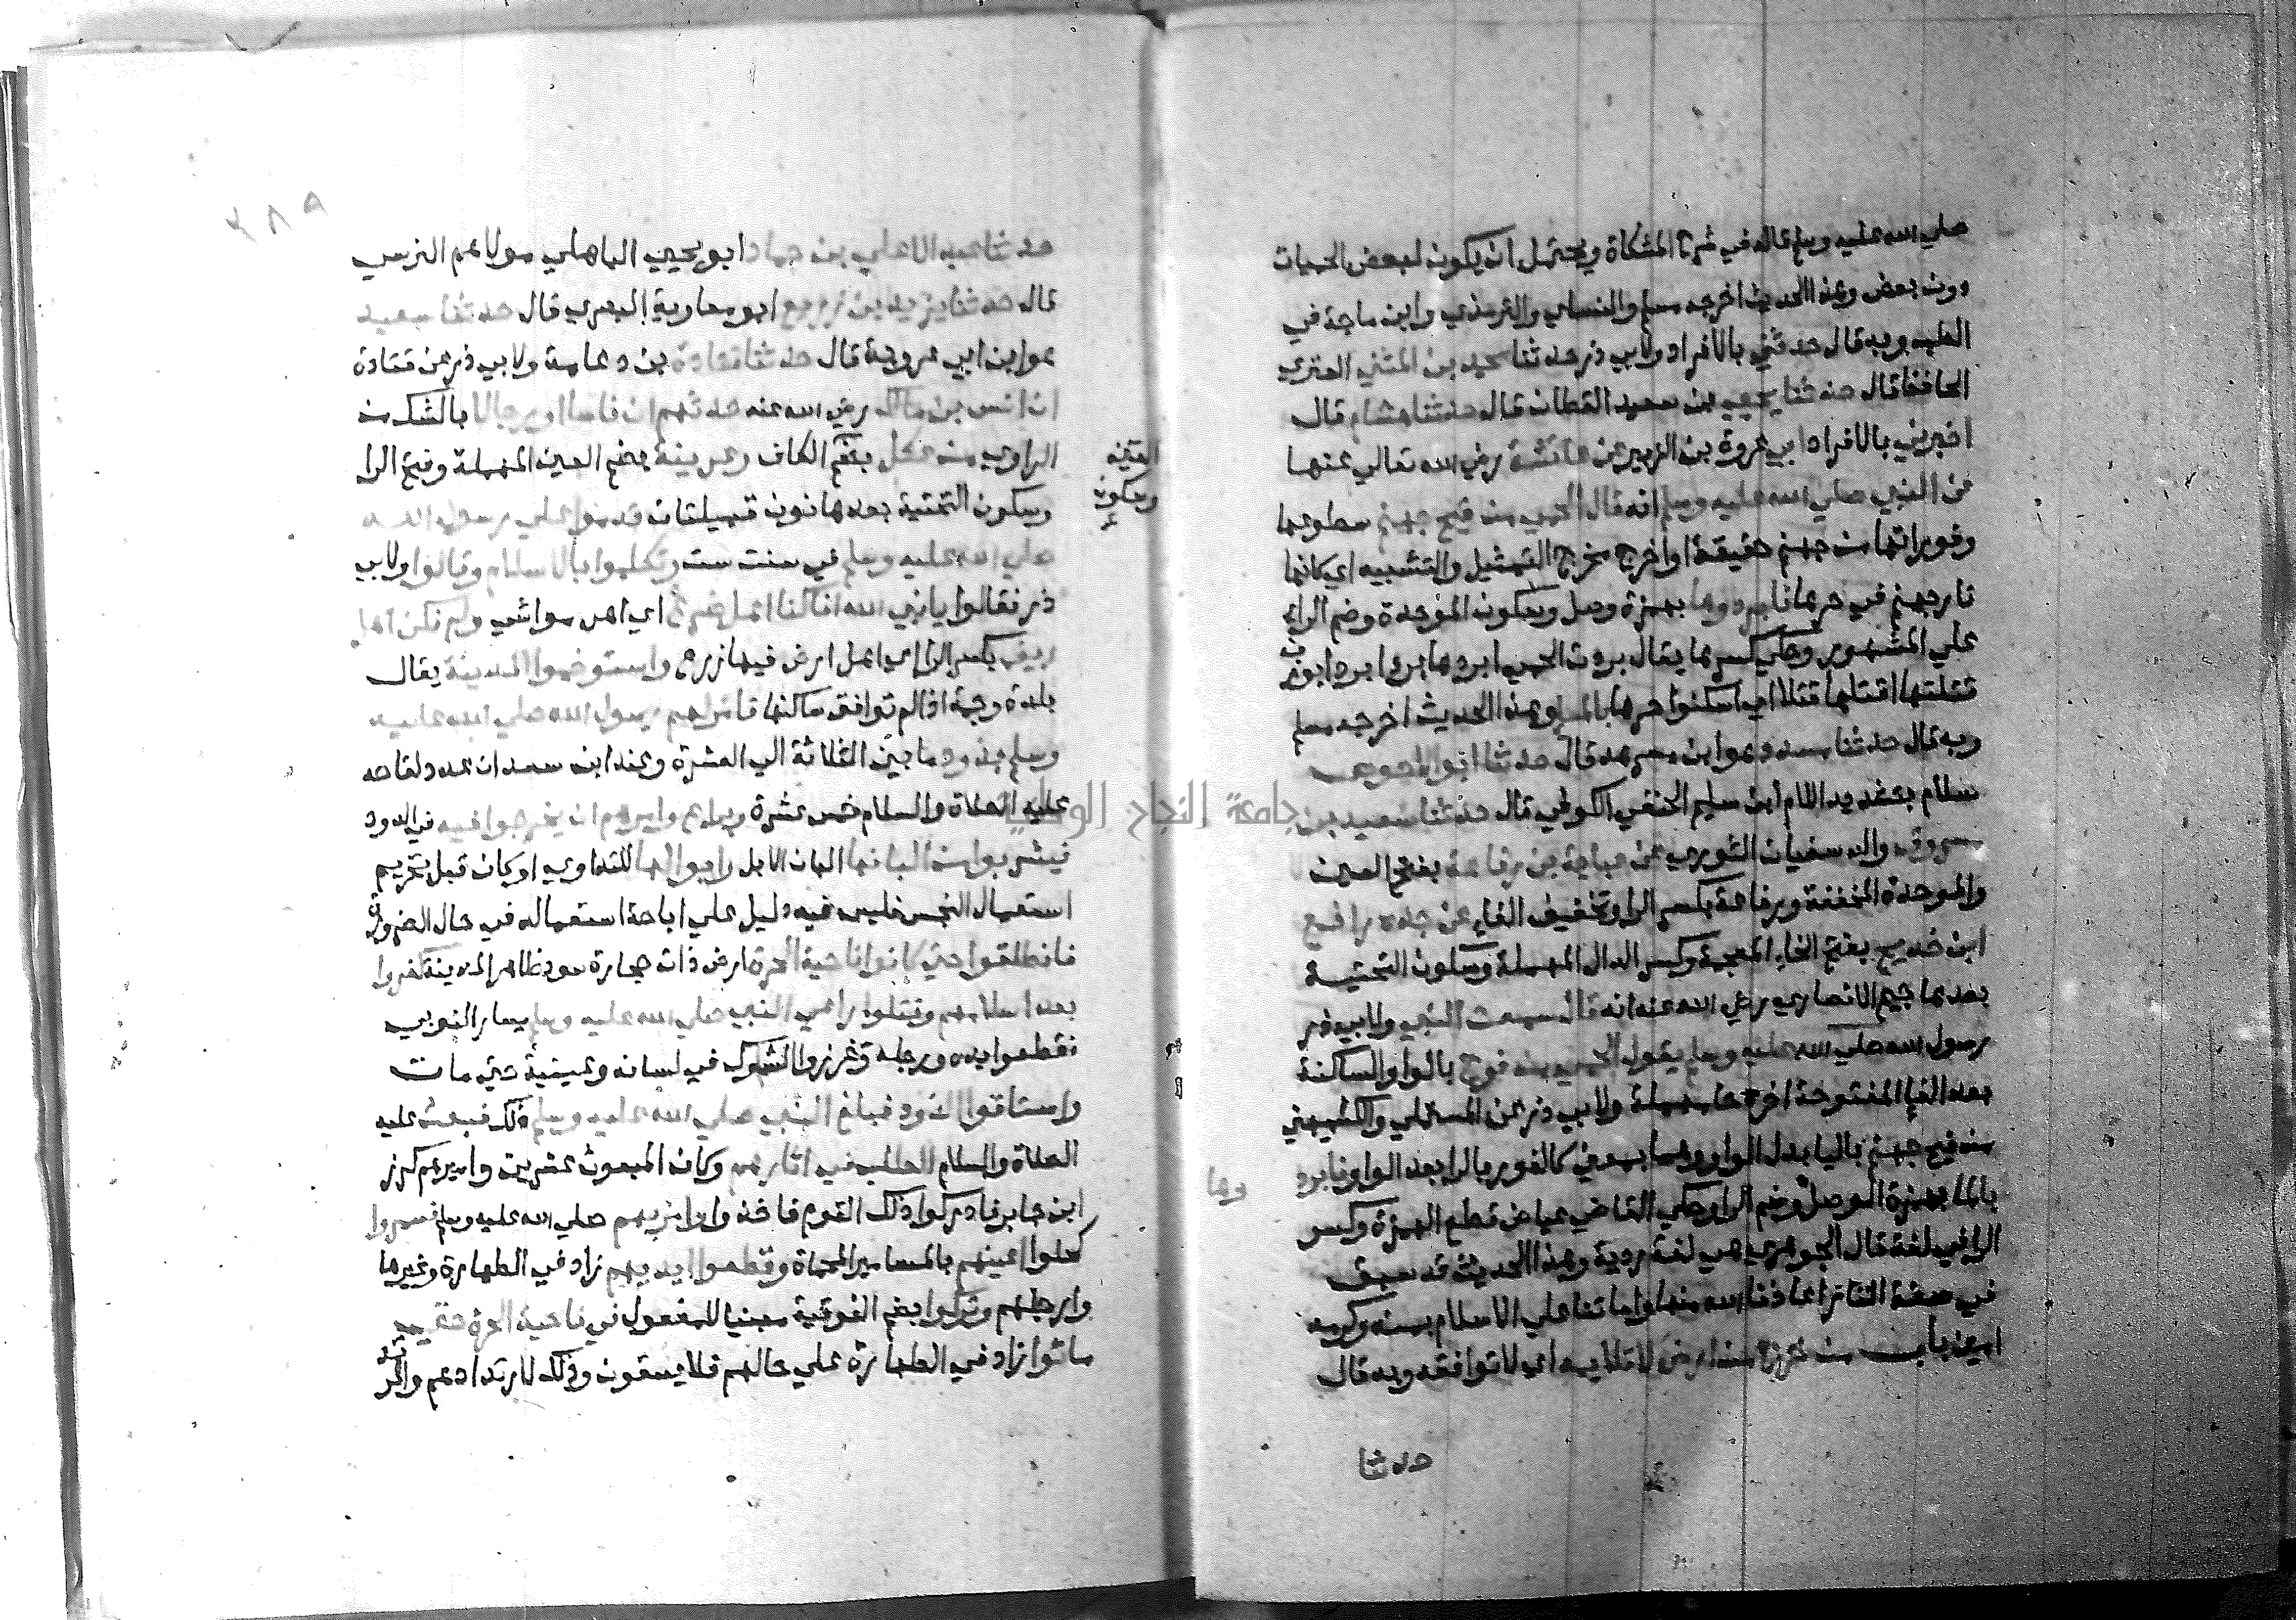 صلي الله عليه وسلم قاله في شرح المشكاة ويحتمل ان يكون لبعض الحميات
دون بعض وهذا الحديث اخرجه مسلم والنساي والترمذي وابن ماجة في
الطب وبه قال حدثني بالافراد ولابي ذر حدثنا محمد بن المثني العنزي
الحافظ قال حدثنا يحيي بن سعيد القطان قال حدثنا هشام قال
اخبرني بالافراد ابي عروة بن الزبير عن عائشة رضي الله تعالي عنها
عن النبي صلي الله عليه وسلم انه قال الحمي من فيح جهنم سطوعها
وفورانها من جهنم حقيقة او اخرج مخرج التمثيل والتشبيه اي كانها
نار جهنم في حرها فابردوها بهمزة وصل وسكون الموحدة وضم الراء
علي المشهور وحكي كسرها يقال بردت الحمي ابردها بردا بوزن
قتلتها اقتلها قتلا اي اسكنوا حرها بالماء وهذا الحديث اخرجه مسلم
وبه قال حدثنا مسدد هو ابن مسرهد قال حدثنا ابو الاحوص
سلام بتشديد اللام ابن سليم الحنفي الكوفي قال حدثنا سعيد بن
مسروق والد سفيان الثوري عن عباية بن رفاعة بفتح العين
والموحدة المخففة ورفاعة بكسر الرا وتخفيف الفاء عن جده رافع
ابن خديج بفتح الخاء المعجمة وكسر الدال المهملة وسكون التحتية
بعدها جيم الانصاري رضي الله عنه انه قال سمعت النبي ولابي ذر
رسول الله صلي الله عليه وسلم يقول الحمي من فوح بالواو الساكنة
بعد الفاء المفتوحة اخره حا مهملة ولابي ذر عن المستملي والكشميهني
من فيح جهنم باليا بدل الواو وهما بمعني كالفور بالرا بعد الواو فابردوها
بالماء بهمزة الوصل وضم الرا وحكي القاضي عياض قطع الهمزة وكسر
الرا في لغة قال الجوهري هي لغة ردية وهذا الحديث قد سبق
في صفة النار اعاذنا الله منها واماتنا علي الاسلام بمنه وكرمه
امين باب من خرج من ارض لا تلايمه اي لا توافقه وبه قال
حدثنا
٣٨٩
حدثنا عبد الاعلي بن حماد ابو يحيي الباهلي مولاهم النرسي
قال حدثنا يزيد بن زريع ابو معاوية البصري قال حدثنا سعيد
هو ابن ابي عروبة قال حدثنا قتادة بن دعامة ولابي ذر عن قتادة
ان انس بن مالك رضي الله عنه حدثهم ان ناسا او رجالا بالشك من
الراوي من عكل بضم الكاف وعرينة بضم العين المهملة وفتح الرا
العين
وسكون
وسكون التحتية بعدها نون قبيلتان قدموا علي رسول الله
صلي الله عليه وسلم في سنة ست وتكلموا بالاسلام وقالوا ولابي
ذر فقالوا يا نبي الله انا كنا اهل ضرع اي اهل مواشي ولم نكن اهل
ريف بكسر الرا اي اهل ارض فيها زرع واستوخموا المدينة يقال
بلدة وخمة اذا لم توافق ساكنها فامر لهم رسول الله صلي الله عليه
وسلم بذود ما بين الثلاثة الي العشرة وعند ابن سعد ان عدد لقاحه
عليه الصلاة والسلام خمس عشرة وبراع وامرهم ان يخرجوا فيه في الذود
فيشربوا من البانها البان الابل وابوالها للتداوي او كان قبل تحريم
استعمال النجس فليس فيه دليل علي اباحة استعماله في حال الضرورة
فانطلقوا حتي كانوا ناحية الحرة ارض ذات حجارة سود ظاهر المدينة كفروا
بعد اسلامهم وقتلوا راعي النبي صلي الله عليه وسلم يسار النوبي
فقطعوا يده ورجله وغرزوا الشوك في لسانه وعينيه حتي مات
واستاقوا الذود فبلغ النبي صلي الله عليه وسلم ذلك فبعث عليه
الصلاة والسلام الطلب في اثارهم وكان المبعوث عشرين واميرهم كرز
ابن جابر فادركوا ذلك القوم فاخذوا وامر بهم صلي الله عليه وسلم فسمروا
كحلوا اعينهم بالمسامير المحماة وقطعوا ايديهم زاد في الطهارة وغيرها
وارجلهم وتركوا بضم الفوقية مبنيا للمفعول في ناحية الحرة حتي
ماتوا زاد في الطهارة علي حالهم فلا يسقون وذلك لارتدادهم والمرتد
جامعة النجاح الوطنية